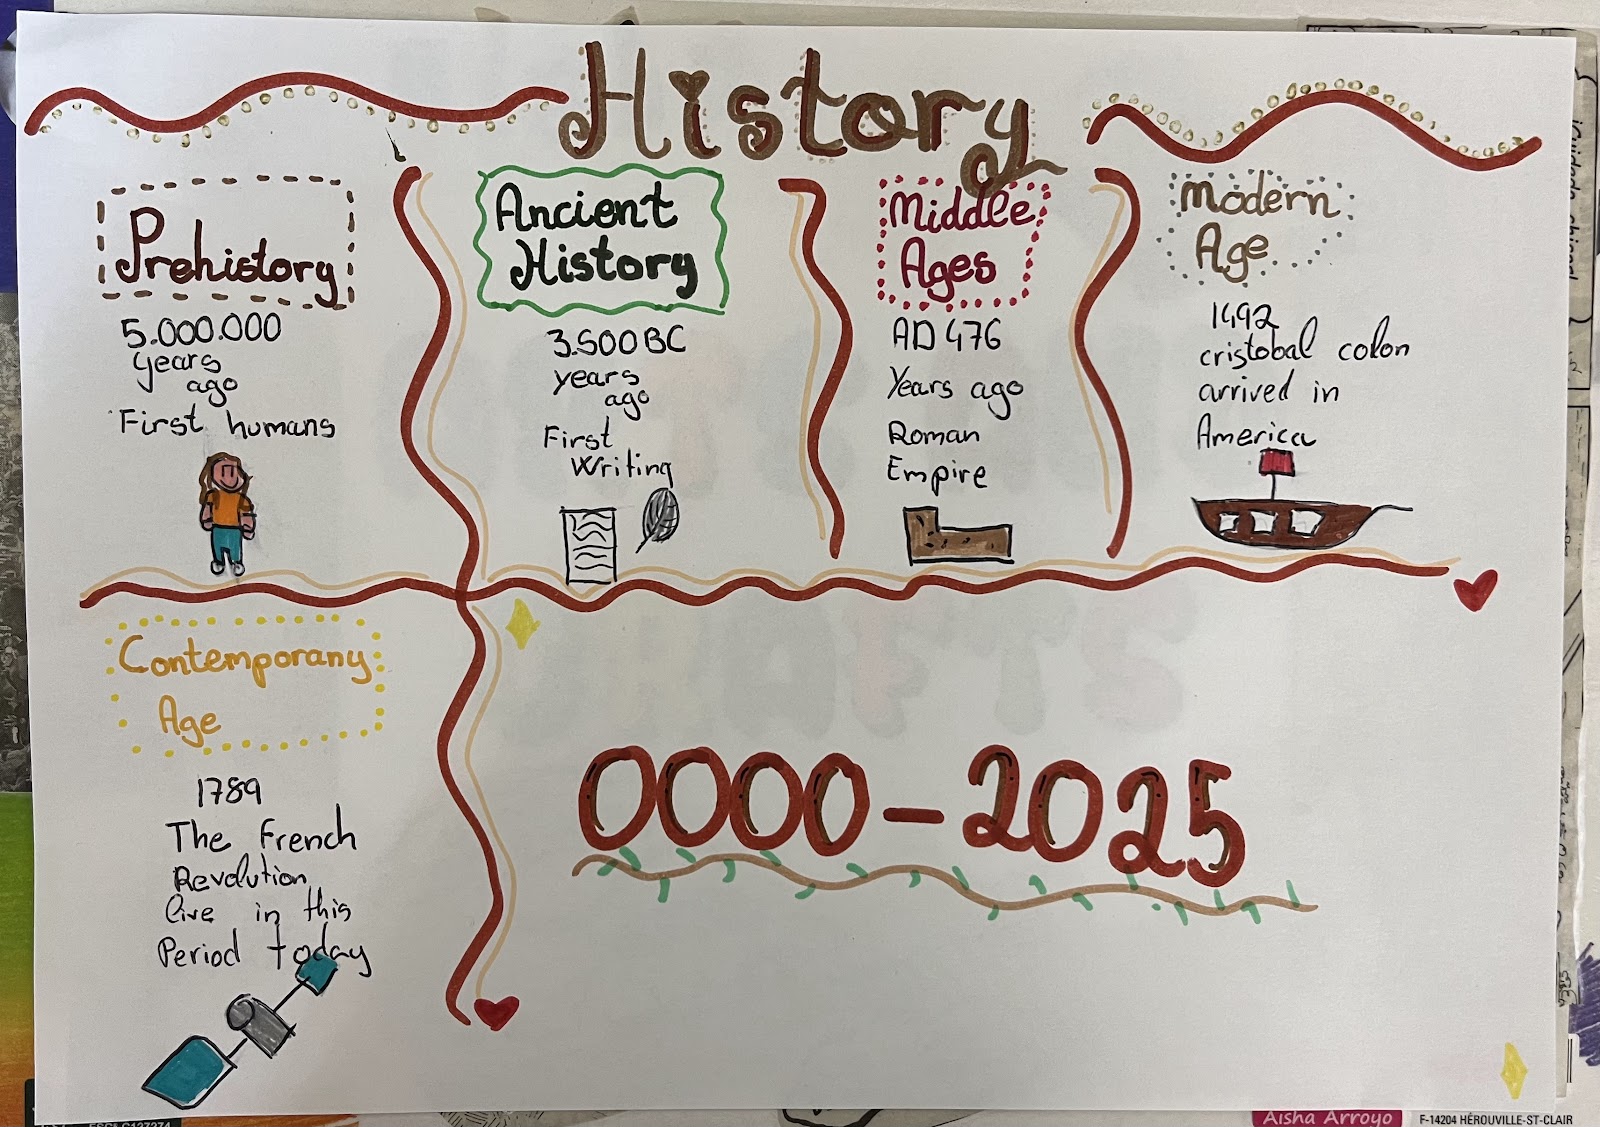 History
Prehistory
5.000.000
years
ago
First humans
Ancient
History
3.500 BC
years
ago
First
Writing
Middle
Ages
AD 476
Years ago
Roman
Empire
Modern
Age
1492
cristobal colon
arrived in
America
Contemporany
Age
1789
The French
Revolution
live in this
Period today
0000-2025
Aisha Arroyo
F-14204 HÉROUVILLE-ST-CLAIR